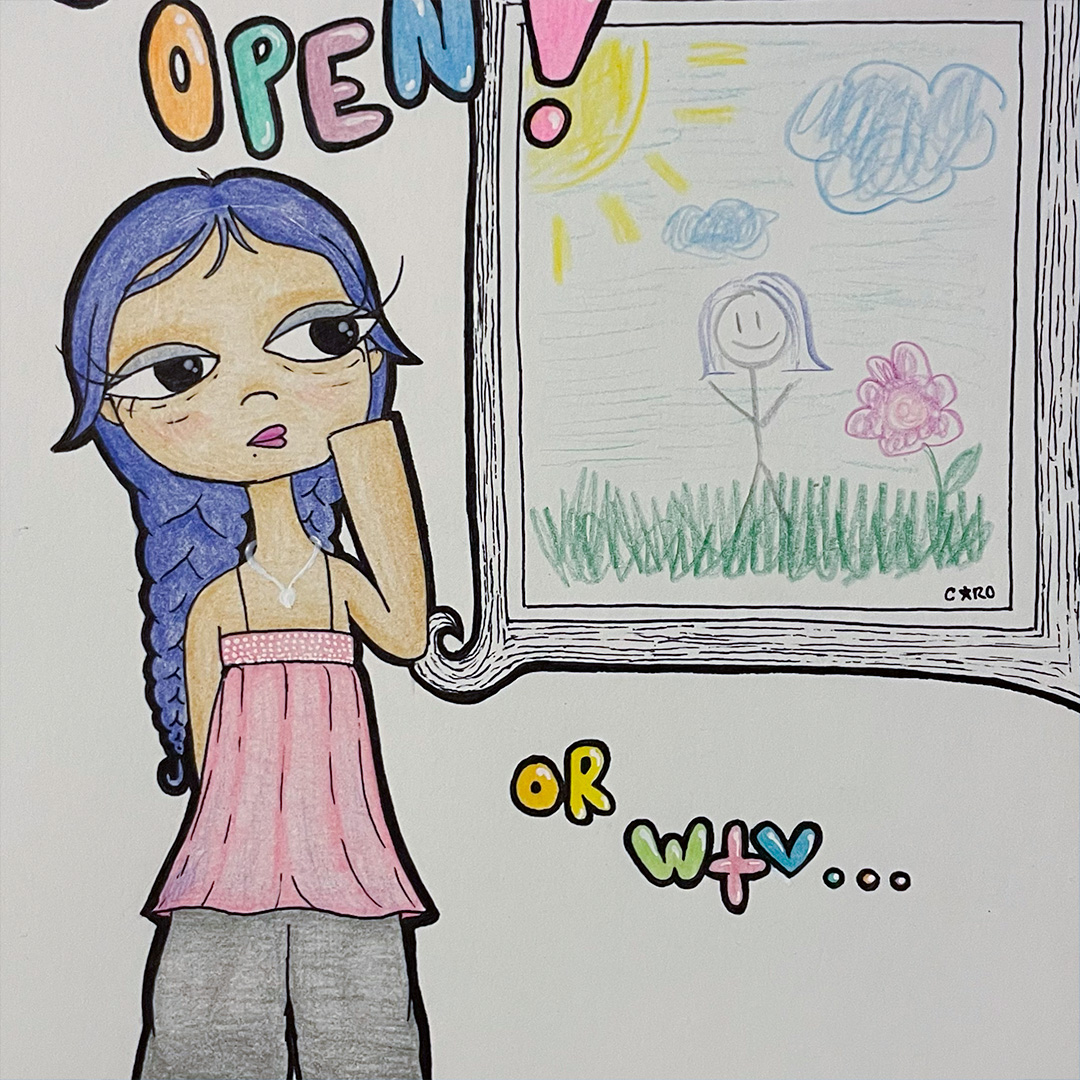 OPEN!
C★RO
OR
WTV...